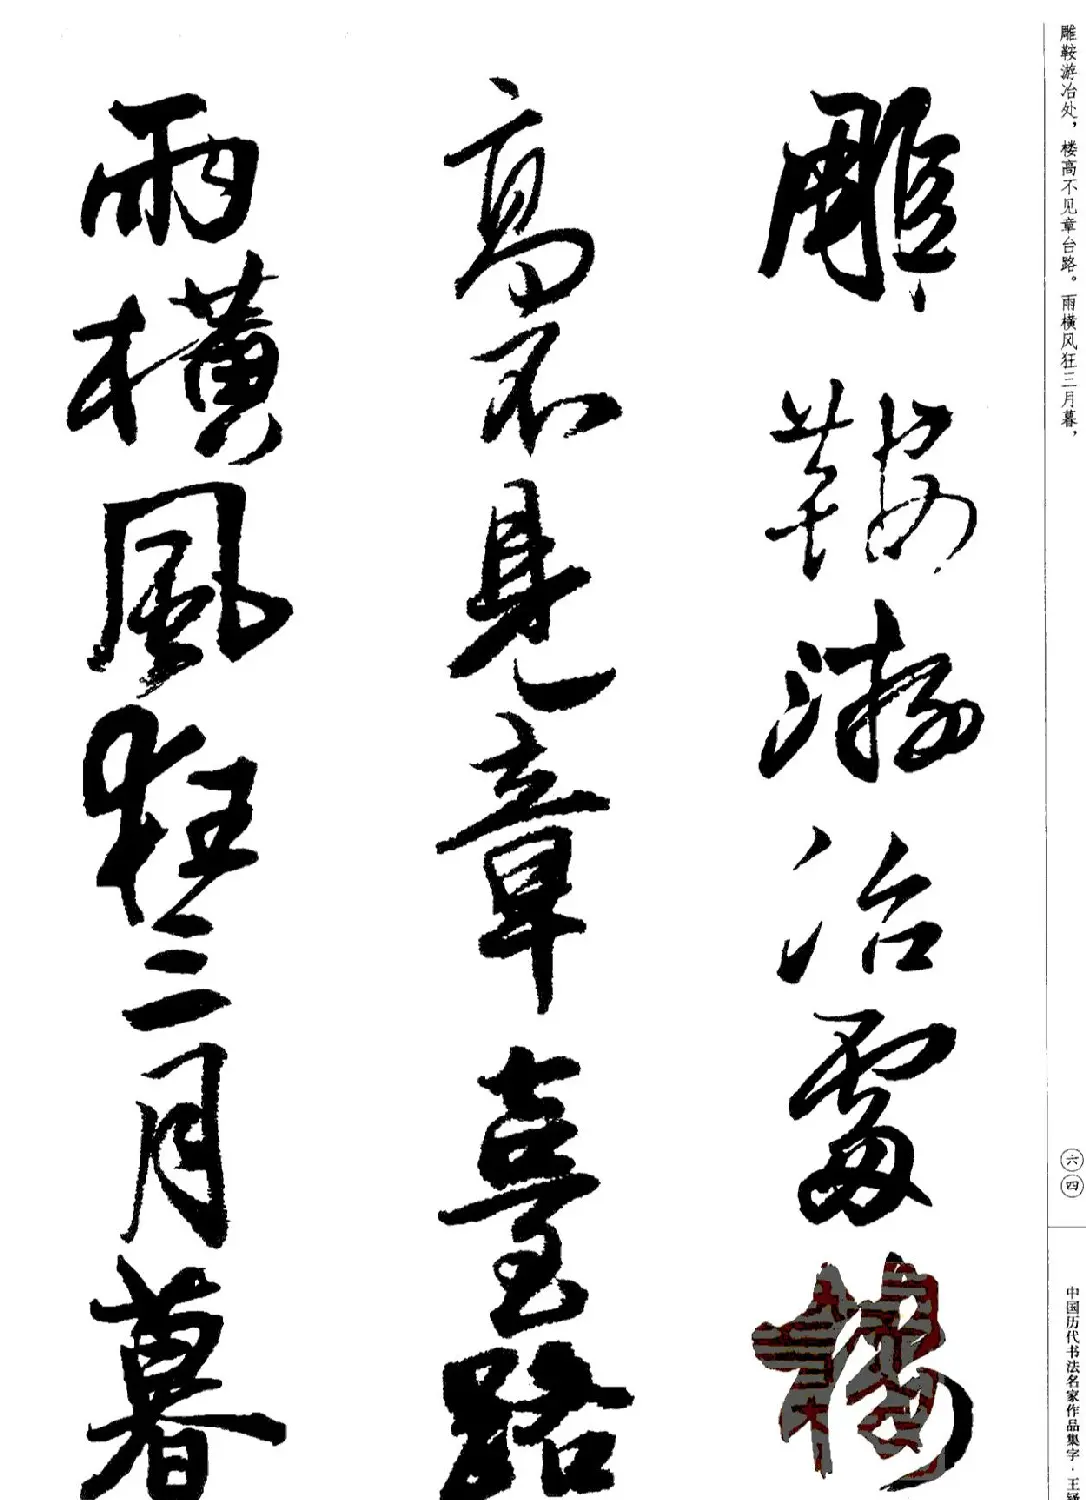 雕鞍游冶处，楼高不见章台路。雨横风狂三月暮，
雕鞍游冶處樓
高不見章臺路
雨橫風狂三月暮
六四
中国历代书法名家作品集字·王